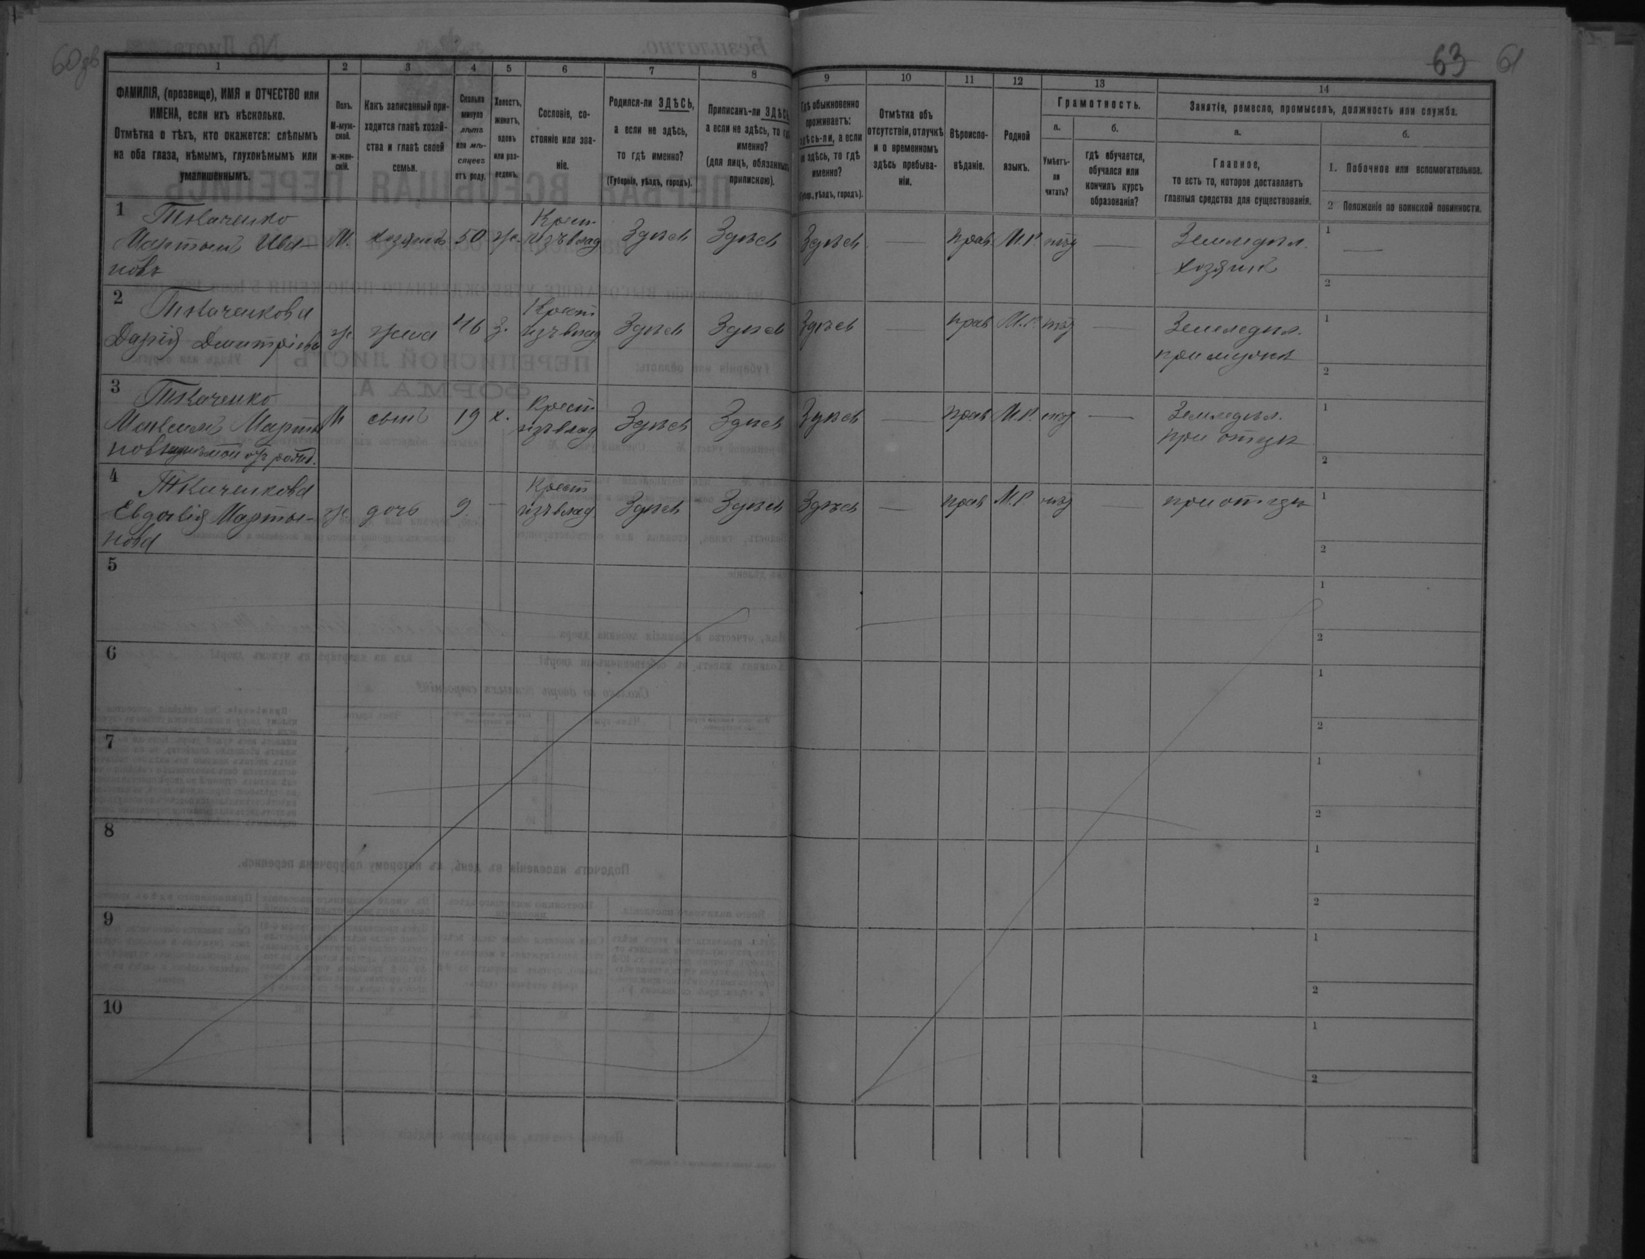 60зв
63 61
1 2 3 4 5 6 7 8 9 10 11 12 13 14
ФАМИЛІЯ, (прозвище), ИМЯ и ОТЧЕСТВО или
ИМЕНА, если ихъ нѣсколько.
Отмѣтка о тѣхъ, кто окажется: слѣпымъ
на оба глаза, нѣмымъ, глухонѣмымъ или
умалишеннымъ.
Полъ.
М-муж-
ской.
ж-жен-
скій.
Какъ записанный при-
ходится главѣ хозяй-
ства и главѣ своей
семьи.
Сколько
минуло
лѣтъ
или мѣ-
сяцевъ
отъ роду.
Холостъ,
женатъ,
вдовъ
или раз-
веденъ.
Сословіе, со-
стояніе или зва-
ніе.
Родился-ли ЗДѢСЬ,
а если не здѣсь,
то гдѣ именно?
(Губернія, уѣздъ, городъ).
Приписанъ-ли ЗДѢСЬ,
а если не здѣсь, то гдѣ
именно?
(для лицъ, обязанныхъ
припискою).
Гдѣ обыкновенно
проживаетъ:
здѣсь-ли, а если
не здѣсь, то гдѣ
именно?
(Губ., уѣздъ, городъ).
Отмѣтка объ
отсутствіи, отлучкѣ
и о временномъ
здѣсь пребыва-
ніи.
Вѣроиспо-
вѣданіе.
Родной
языкъ.
Грамотность.
а.
Умѣетъ-
ли
читать?
б.
гдѣ обучается,
обучался или
кончилъ курсъ
образованія?
Занятіе, ремесло, промыселъ, должность или служба.
а.
Главное,
то есть то, которое доставляетъ
главныя средства для существованія.
б.
1. Побочное или вспомогательное.
2 Положеніе по воинской повинности.
1 Ткаченко
Мартынъ Ива-
новъ
М. хозяинъ 50 ж. Крест. изъ влад Здѣсь Здѣсь Здѣсь — прав М.Р. нѣт — Земледѣл. хозяин 1 — 2
2 Ткаченкова
Дарія Дмитріева
ж жена 46 з. Крест изъ влад Здѣсь Здѣсь Здѣсь — прав М.Р. нѣт — Земледѣл. при мужѣ 1 2
3 Ткаченко
Максимъ Марты
новъ
М сынъ 19 х. Крест изъ влад Здѣсь Здѣсь Здѣсь — прав М.Р. нѣт — Земледѣл. при отцѣ 1 2
4 Ткаченкова
Марты-
нова
ж. дочь 9 — Крест изъ влад Здѣсь Здѣсь Здѣсь — прав М.Р. нѣт — при отцѣ 1 2
5 1 2
6 1 2
7 1 2
8 1 2
9 1 2
10 1 2